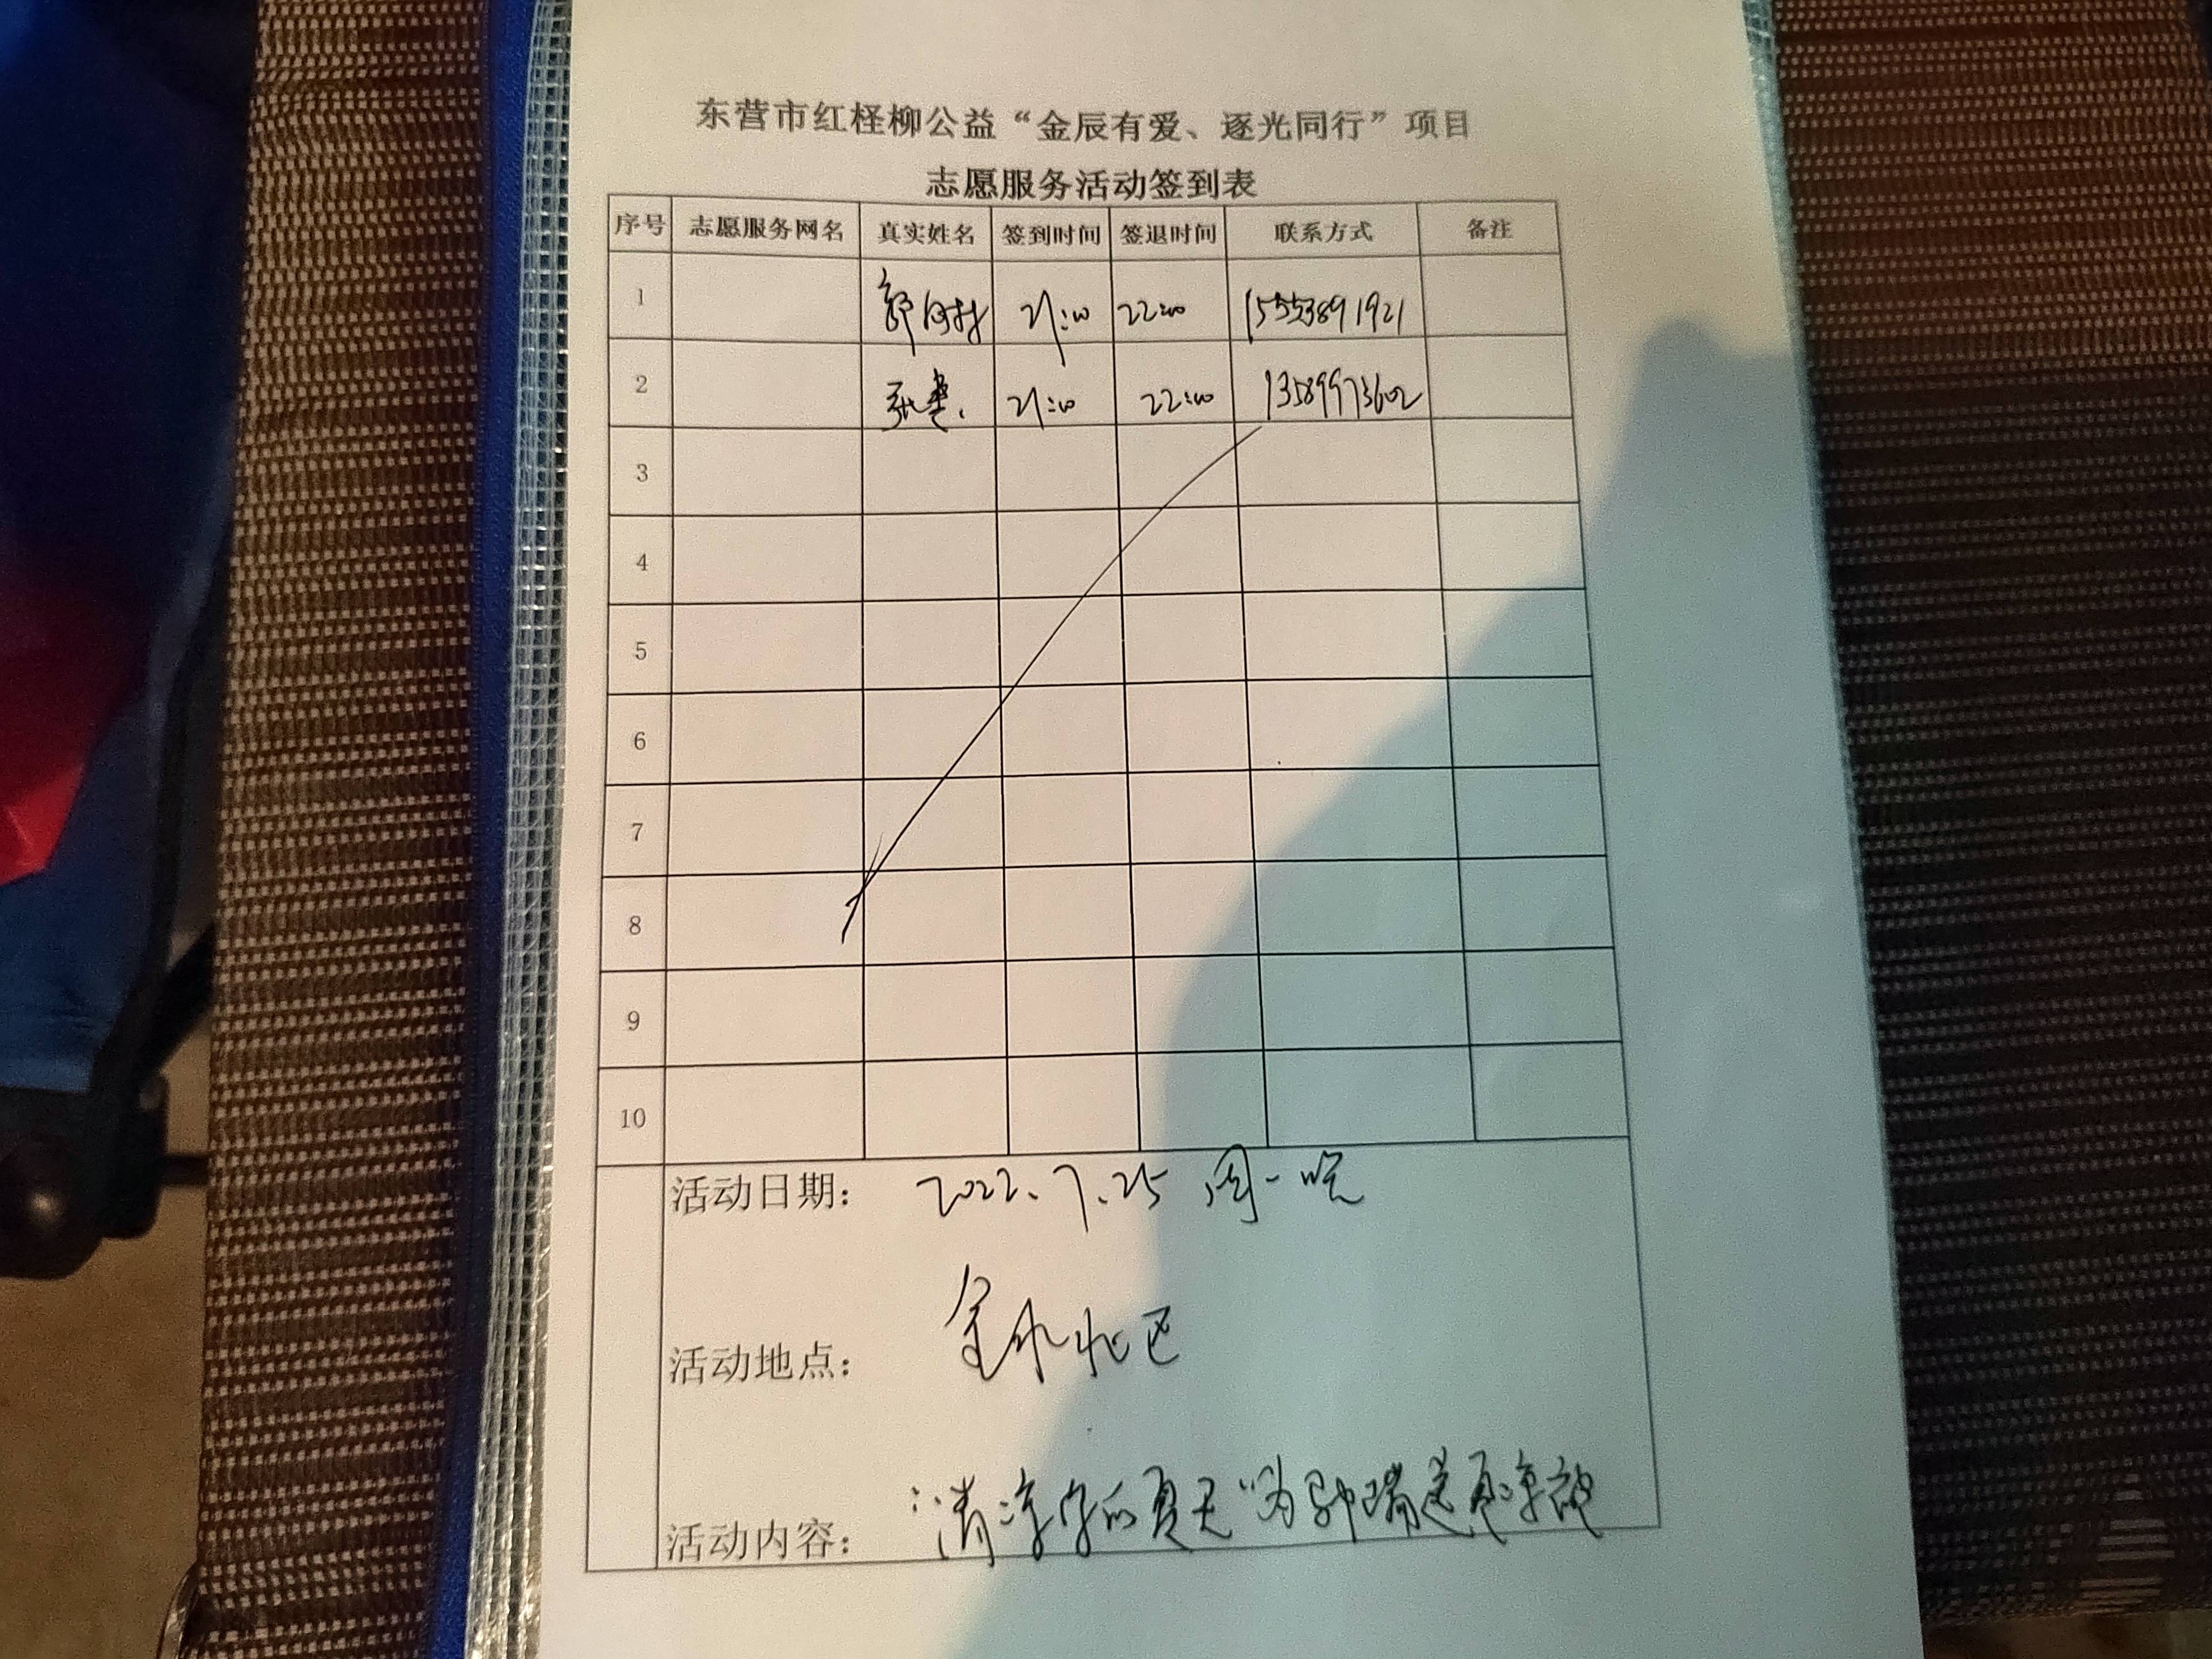 东营市红柽柳公益“金辰有爱、逐光同行”项目
志愿服务活动签到表
序号 志愿服务网名 真实姓名 签到时间 签退时间 联系方式 备注
1 21:00 22:00 15553891921
2 21:00 22:00 13589973602
3
4
5
6
7
8
9
10
活动日期： 2022.7.25 周一晚
活动地点： 金水北区
活动内容： 清凉 的夏天“为 瑞送